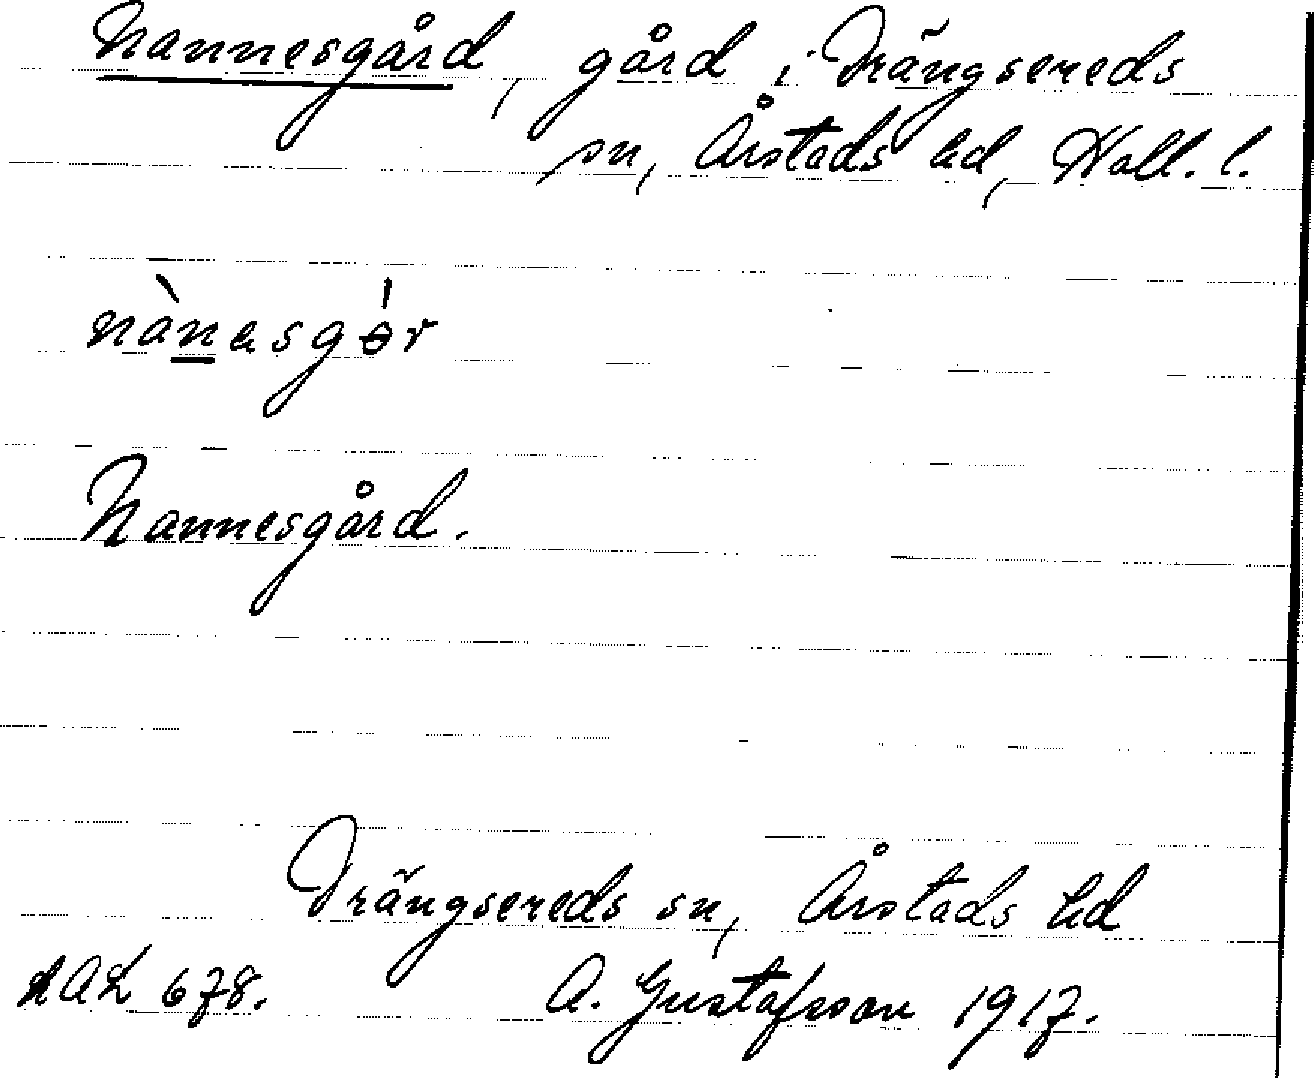 Nannesgård, gård i Drängsereds
sn, Årstads hd, Hall. l.
nànasgɵ́r
Nannesgård.
Drängsereds sn, Årstads hd
A. Gustafsson 1917.